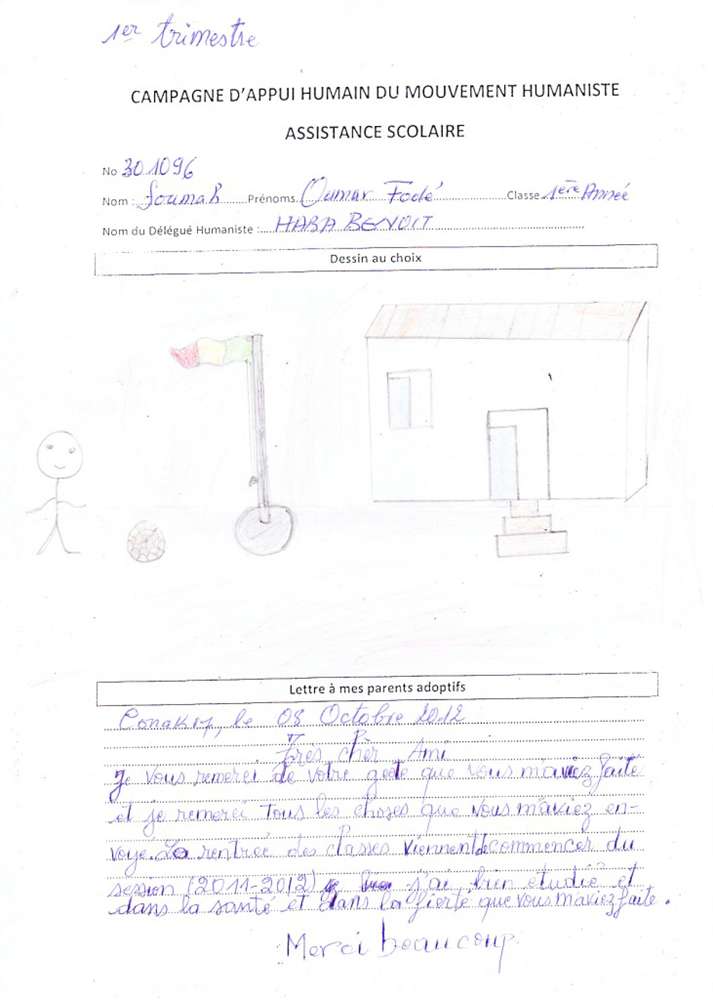 1er trimestre
CAMPAGNE D'APPUI HUMAIN DU MOUVEMENT HUMANISTE
ASSISTANCE SCOLAIRE
No 301096
Nom : Soumah Prénoms Oumar Fodé Classe 1ère Année
Nom du Délégué Humaniste : HABA BENOIT
Dessin au choix
Lettre à mes parents adoptifs
Conakry, le 08 Octobre 2012
Très chèr Ami
Je vous remerci de votre geste que vous m'aviez faite
et je remerci Tous les choses que vous m'aviez en-
voyé. La rentrée des classes viennent de commencer du
session (2011-2012) j'ai bien étudié et
dans la santé et dans la fierté que vous m'aviez faite.
Merci beaucoup